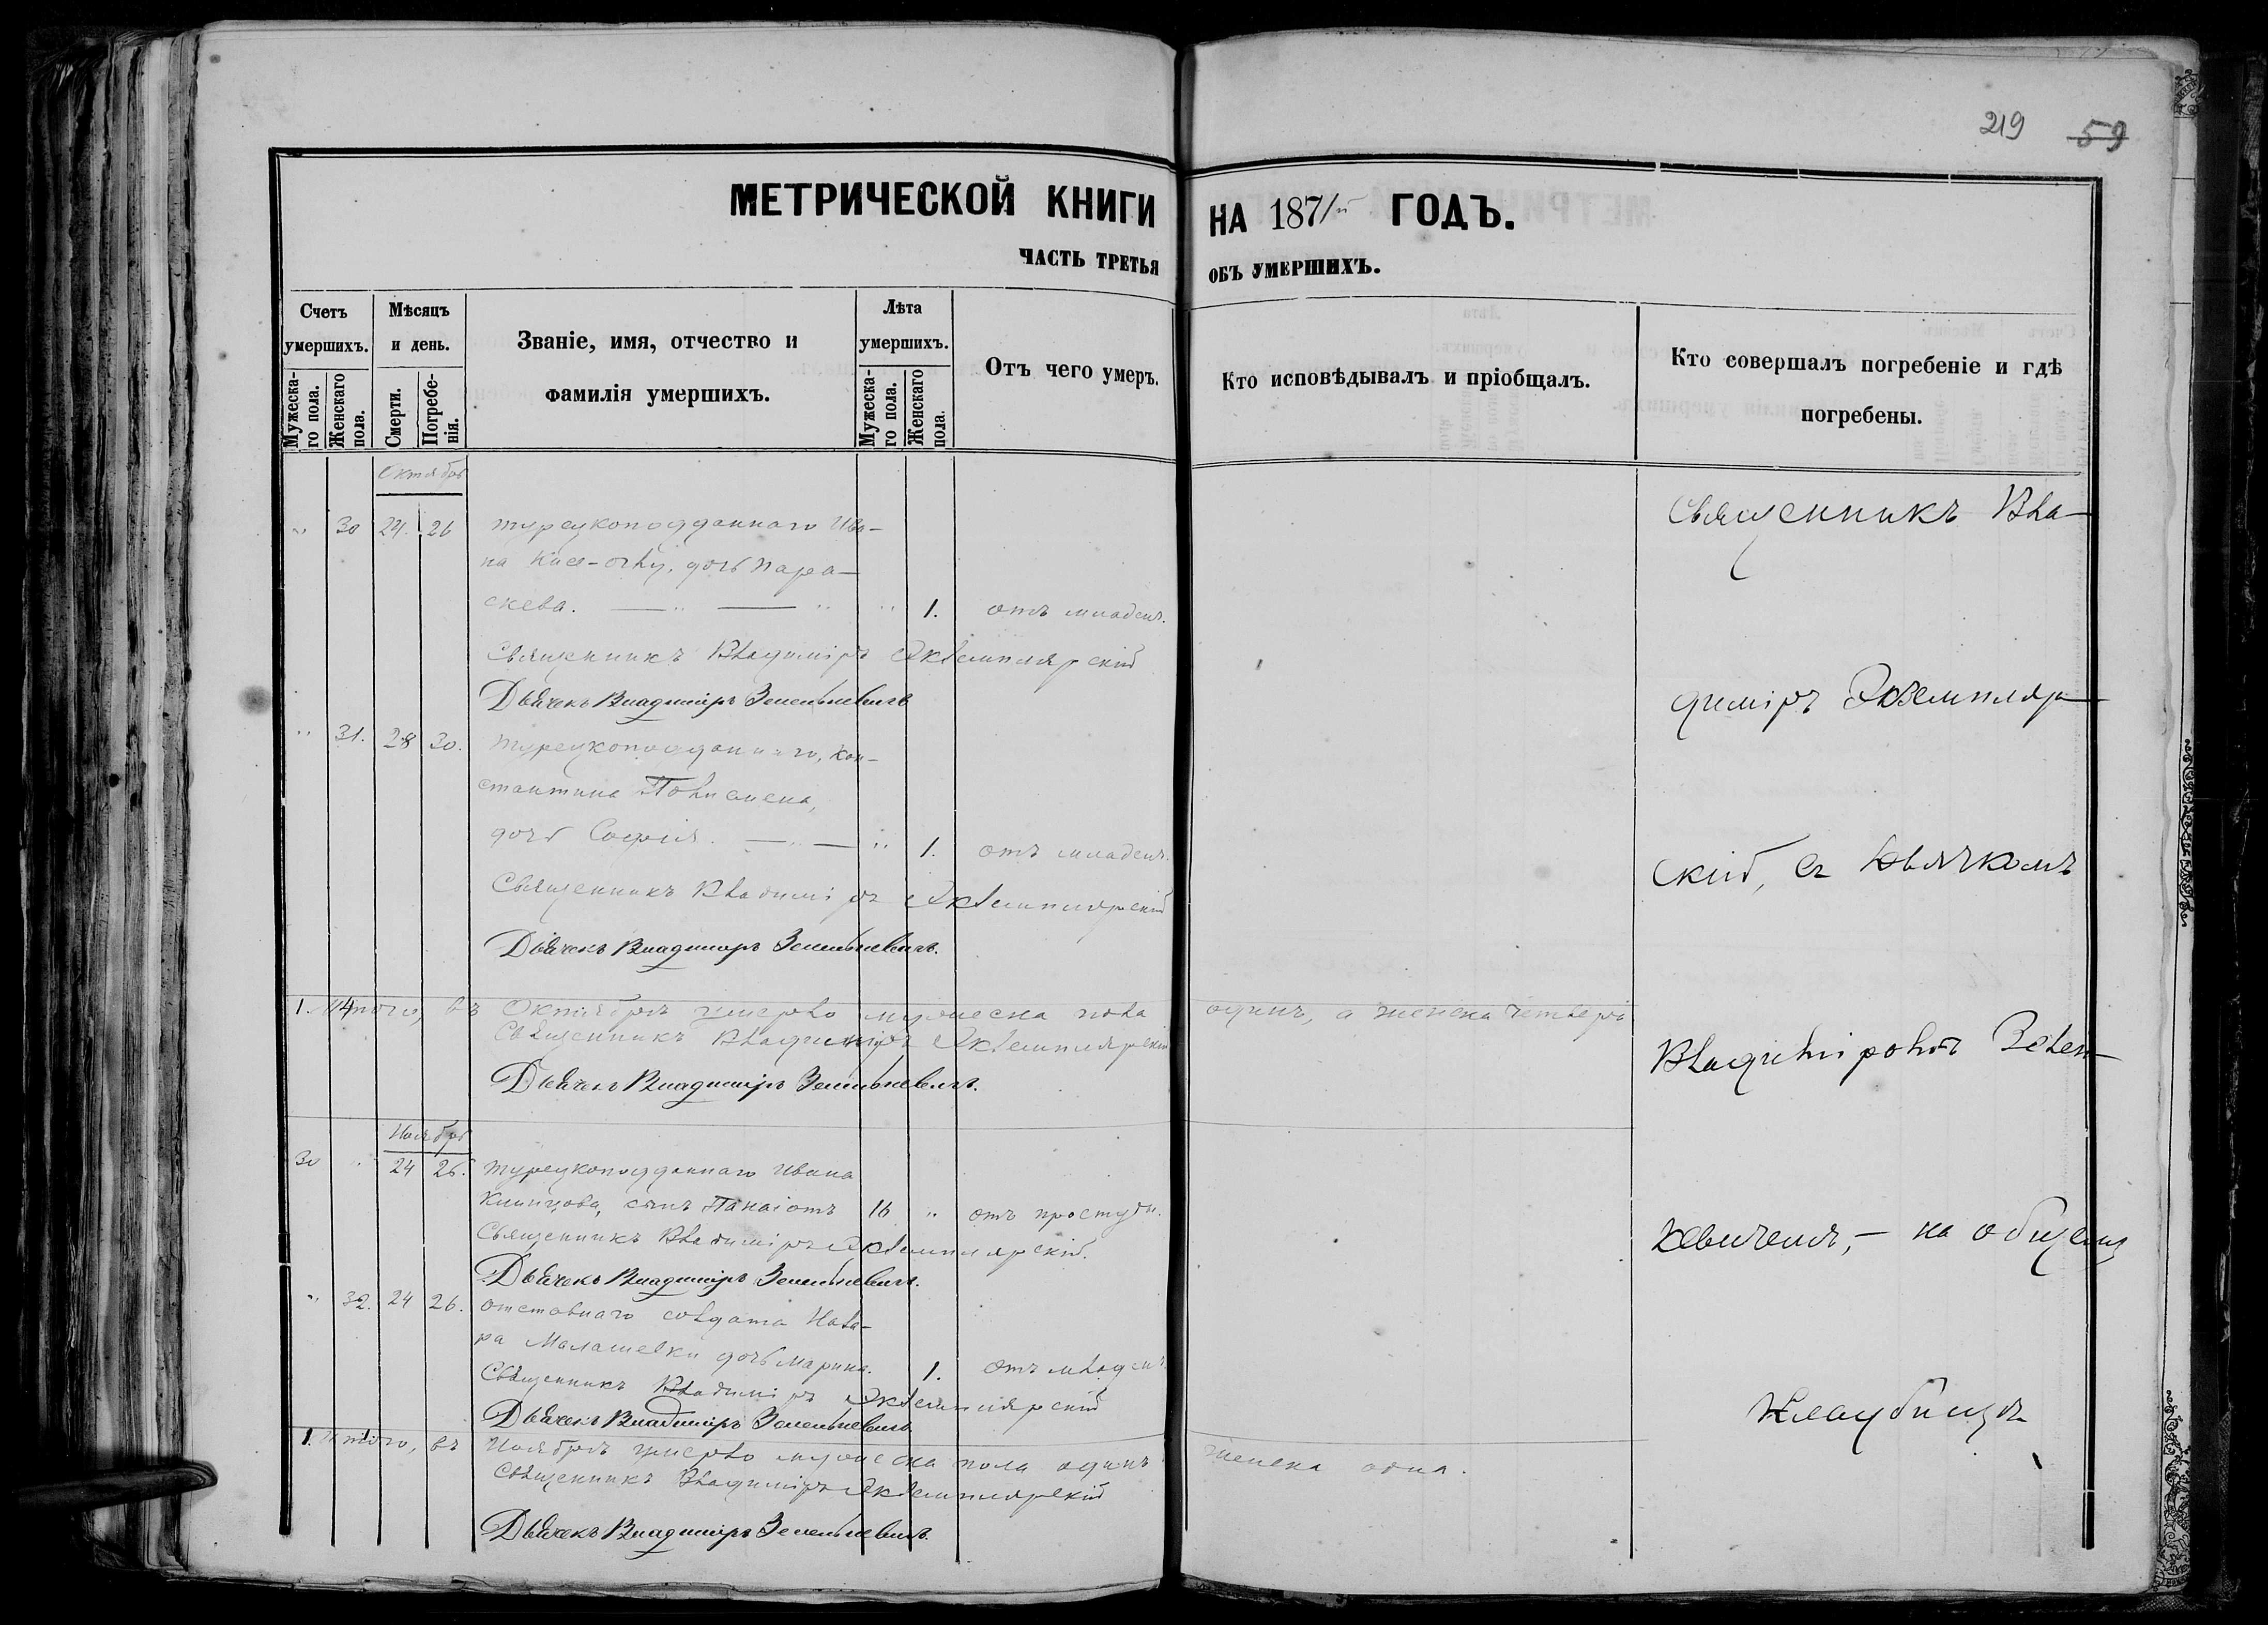 219 59
МЕТРИЧЕСКОЙ КНИГИ НА 1871й ГОДЪ.
ЧАСТЬ ТРЕТЬЯ ОБЪ УМЕРШИХЪ.
Счетъ умершихъ.
Мужескаго пола.
Женскаго пола.
Мѣсяцъ и день.
Смерти.
Погребенія.
Званіе, имя, отчество и фамилія умершихъ.
Лѣта умершихъ.
Мужескаго пола.
Женскаго пола.
Отъ чего умеръ.
Кто исповѣдывалъ и пріобщалъ.
Кто совершалъ погребеніе и гдѣ погребены.
Октябрь
„ 30 24 26 турецкоподданнаго Ива-
на дочь Пара-
скева. — „ — „ „ 1. отъ младен.
Священникъ Владиміръ Экземплярскій
Дьячекъ Владиміръ Зеленкевичъ
„ 31. 28 30. турецкоподданнаго, Кон-
стантина
дочь Софія. — „ — „ 1. отъ младен.
Священникъ Владиміръ Экземплярскій
Дьячекъ Владиміръ Зеленкевичъ.
1. 4 Итого, въ Октябрѣ умерло мужеска пола одинъ, а женска четверо
Священникъ Владиміръ Экземплярскій
Дьячекъ Владиміръ Зеленкевичъ.
Ноябрь
30 „ 24 26. турецкоподданнаго Ивана
сынъ Панаіотъ 16 „ отъ простуды.
Священникъ Владиміръ Экземплярскій.
Дьячекъ Владиміръ Зеленкевичъ.
„ 32. 24 26. отставнаго солдата
дочь Марина. 1. отъ младен.
Священникъ Владиміръ Экземплярскій
Дьячекъ Владиміръ Зеленкевичъ
1. 1 Итого, въ Ноябрѣ умерло мужеска пола одинъ женска одна.
Священникъ Владиміръ Экземплярскій
Дьячекъ Владиміръ Зеленкевичъ.
Священникъ Вла-
диміръ Экземпляр-
скій, съ дьячкомъ
Владиміромъ Зелен-
кевичемъ, — на общемъ
кладбищѣ